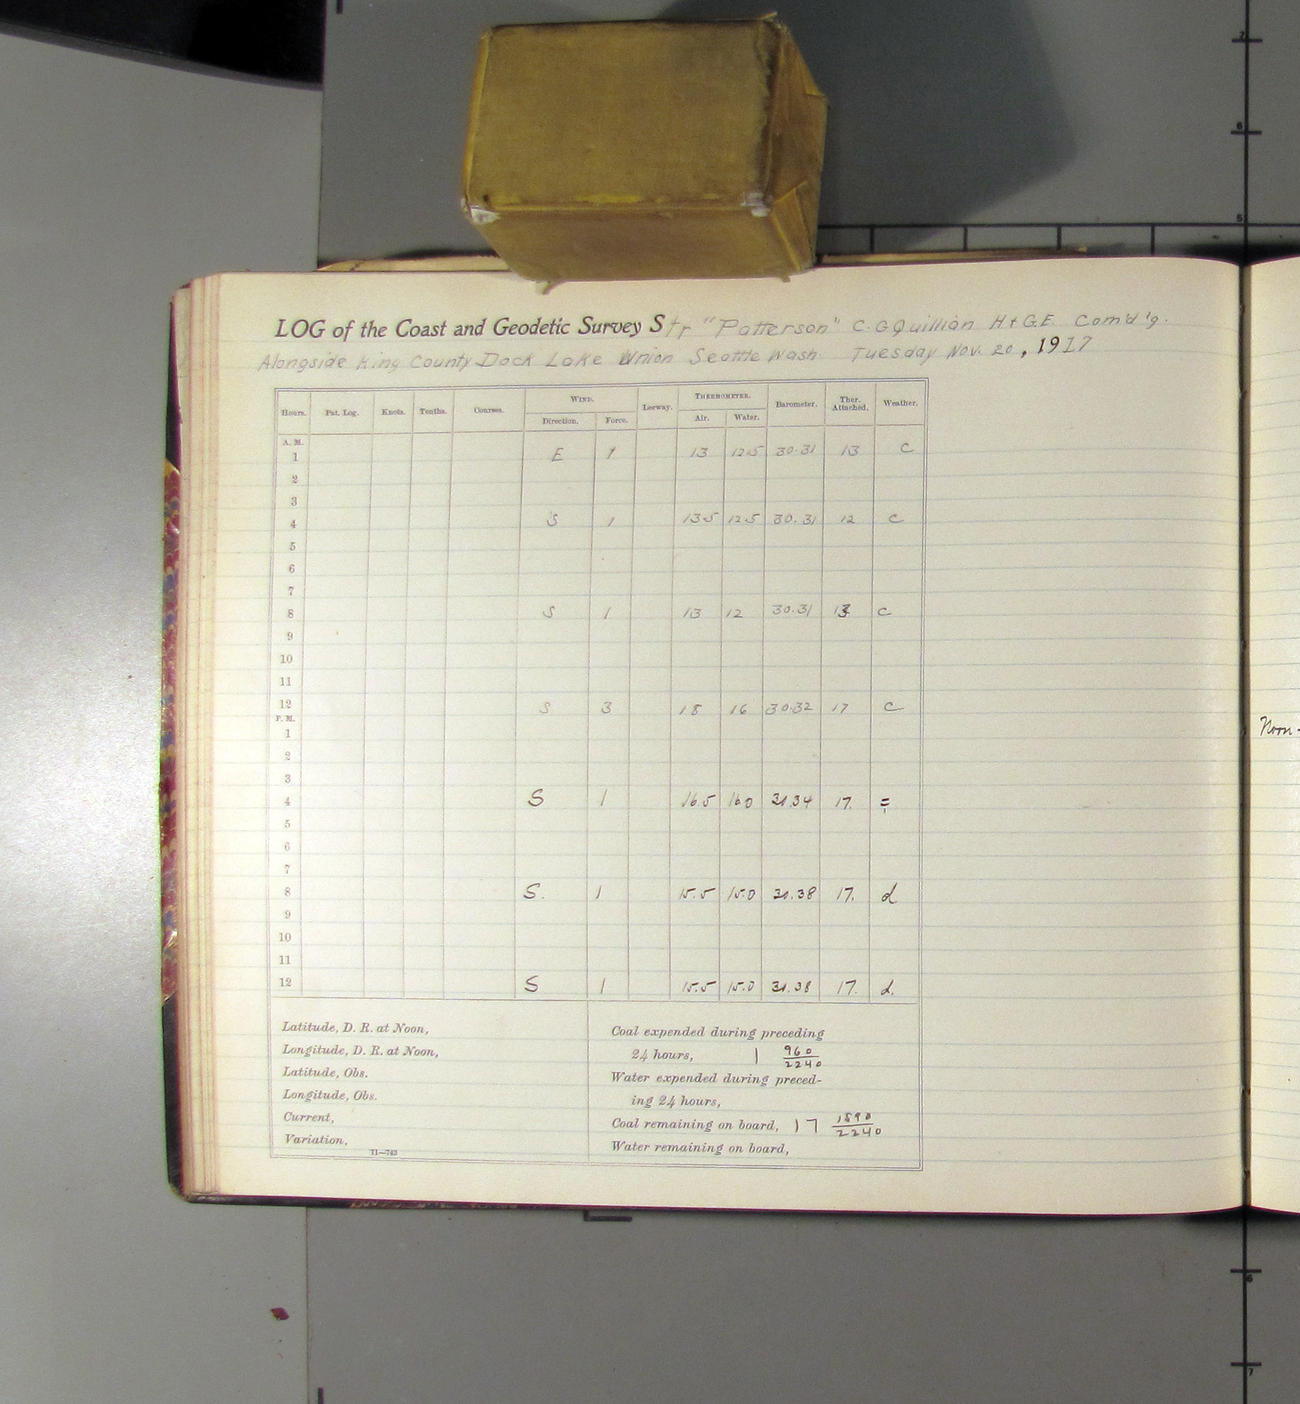 LOG of the Coast and Geodetic Survey Str "Patterson" C. G Quillian H & G.E. Com'd'g.
Alongside King County Dock Lake Union Seattle Wash. Tuesday Nov. 20, 1917
Hours. Pat. Log. Knots. Tenths. Courses. WIND. Direction. Force. Leeway. THERMOMETER. Air. Water. Barometer. Ther. Attached. Weather.
A. M.
1 E 1 13 12.5 30.31 13 c
2
3
4 S 1 13.5 12.5 30.31 12 c
5
6
7
8 S 1 13 12 30.31 13 c
9
10
11
12 S 3 18 16 30.32 17 c
P. M.
1
2
3
4 S 1 16.5 16.0 17.
5
6
7
8 S. 1 15.5 15.0 17. d
9
10
11
12 S 1 15.5 15.0 17. d.
Latitude, D. R. at Noon,
Longitude, D. R. at Noon,
Latitude, Obs.
Longitude, Obs.
Current,
Variation,
11—743
Coal expended during preceding
24 hours, 1 960/2240
Water expended during preced-
ing 24 hours,
Coal remaining on board, 17 1890/2240
Water remaining on board,
Noon-